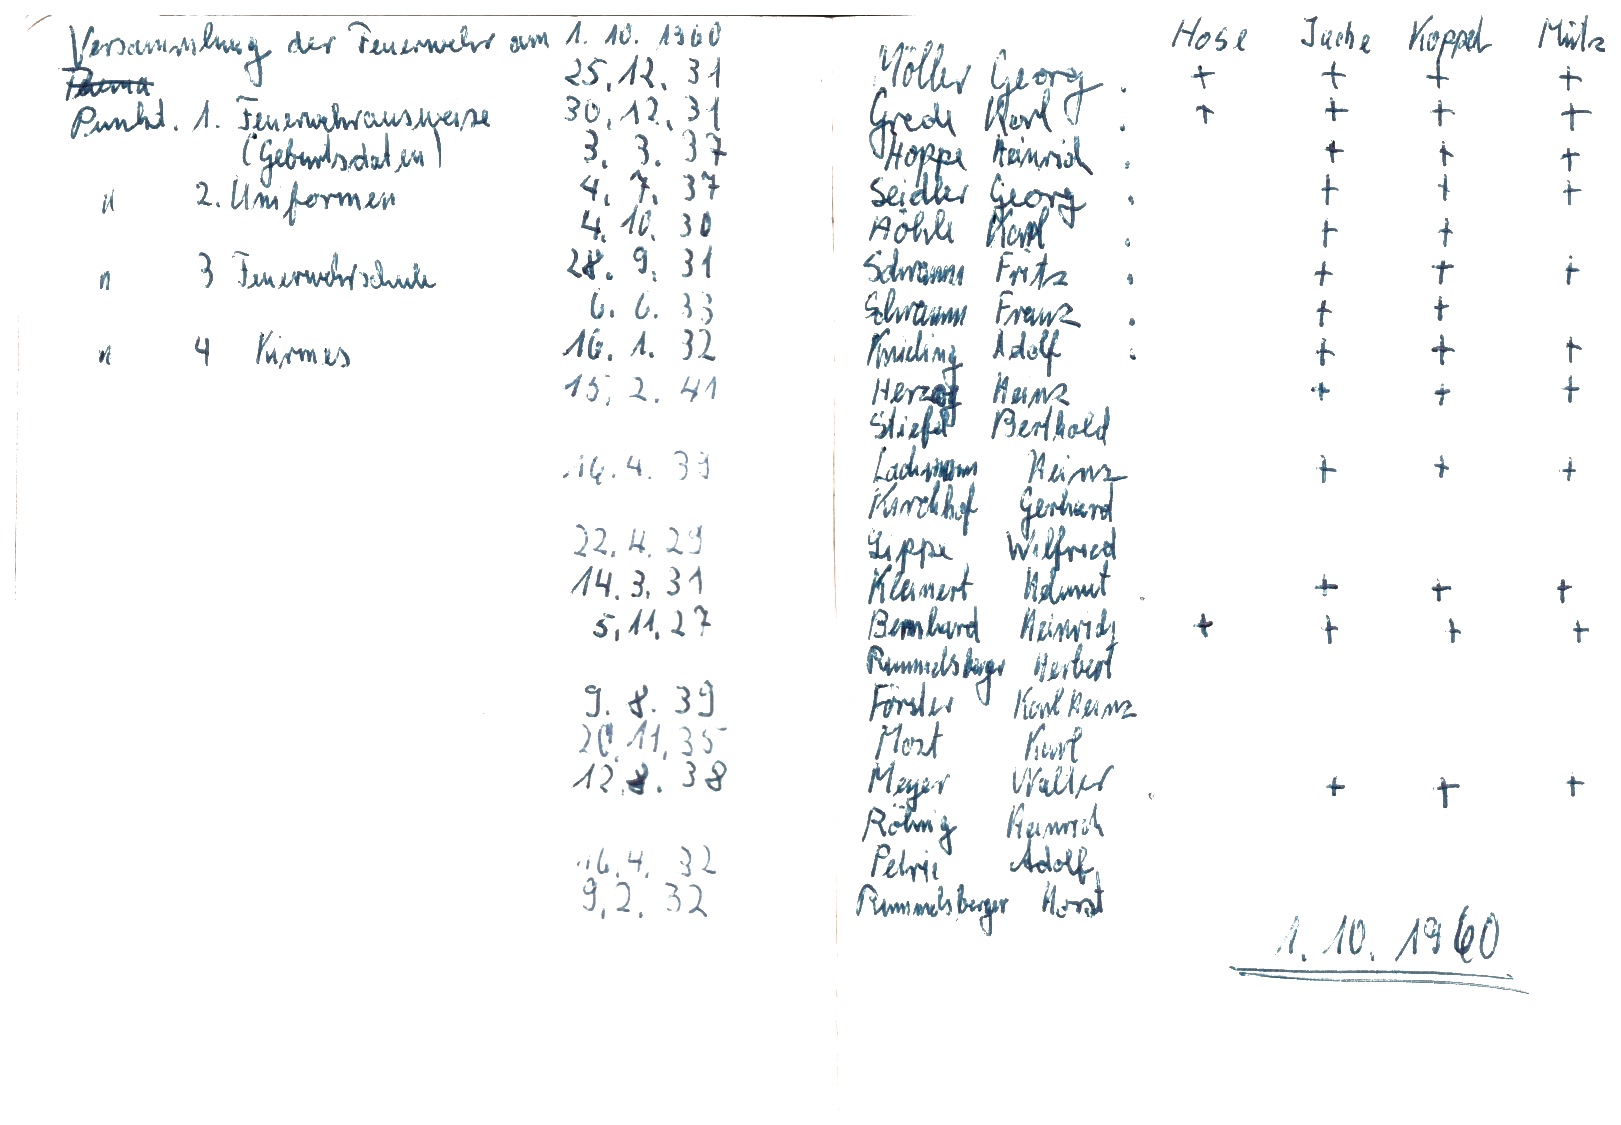 Versammlung der Feuerwehr am 1. 10. 1960
Thema
Punkt. 1. Feuerwehrausweise
(Geburtsdaten)
" 2. Uniformen
" 3 Feuerwehrschule
" 4 Kirmes
Hose Jacke Koppel Mütz
25. 12. 31 Möller Georg . + + + +
30. 12. 31 Grede Karl . + + + +
3. 3. 37 Hoppe Heinrich . + + +
4. 7. 37 Seidler Georg . + + +
4. 10. 30 Höhle Karl . + +
28. 9. 31 Schramm Fritz . + + +
6. 6. 33 Schramm Franz . + +
16. 1. 32 Knieling Adolf . + + +
15. 2. 41 Herzog Heinz + + +
Stiefel Berthold
16. 4. 39 Lachmann Heinz + + +
Kirchhof Gerhard
22. 4. 29 Lippe Wilfried
14. 3. 31 Kleinert Helmut . + + +
5. 11. 27 Bernhard Heinrich + + + +
Rummelsberger Herbert
9. 8. 39 Förster Karl Heinz
20. 11. 35 Most Karl
12. 8. 38 Meyer Walter . + + +
Röhrig Heinrich
16. 4. 32 Petrie Adolf
9. 2. 32 Rummelsberger Horst
1. 10. 1960